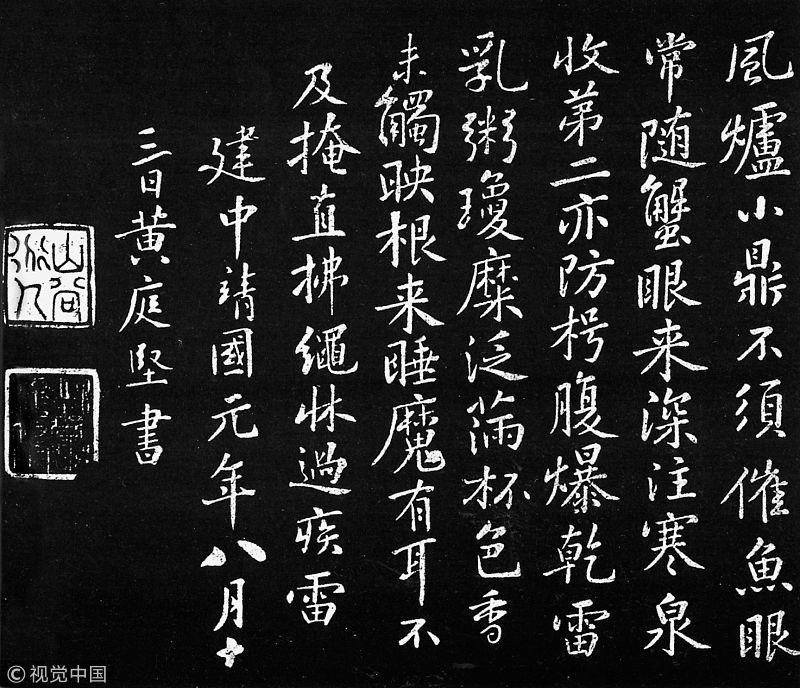 風爐小鼎不須催魚眼
常随蟹眼来深注寒泉
收第二亦防枵腹爆乾雷
乳粥瓊糜泛滿杯色香
未觸映根来睡魔有耳不
及掩直拂繩牀過疾雷
建中靖國元年八月十
三日黄庭堅書
山谷道人
© 视觉中国